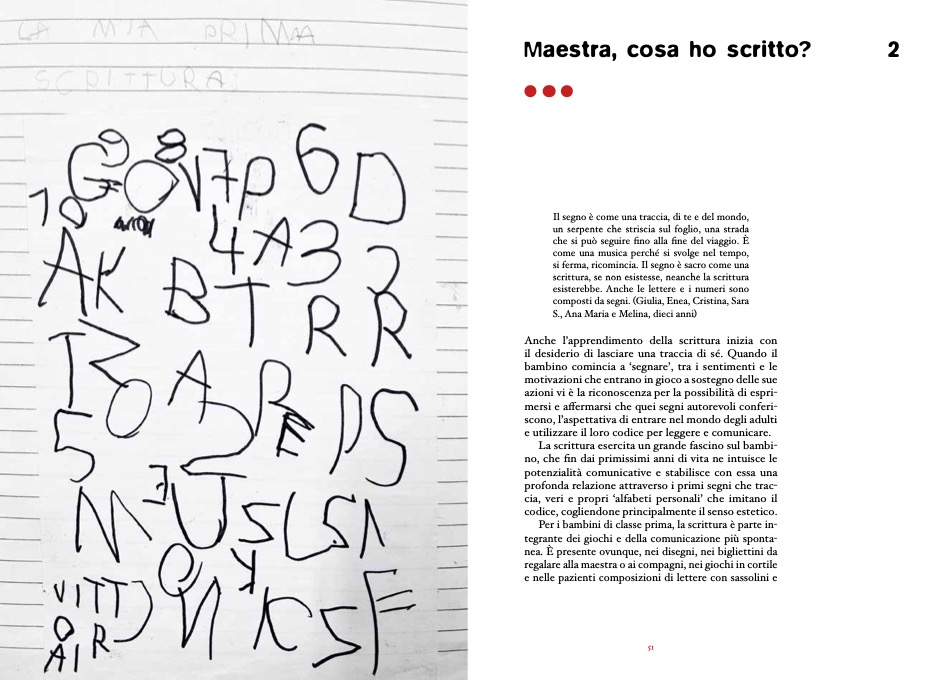 LA MIA PRIMA
SCRITTURA:
G 9 O 8 V 7 P 6 D
10
4 A 3 2
A K B T R R
B O A R E P S
5
M E U S L S A
O K
VITTO
O R N K S F
AI
Maestra, cosa ho scritto? 2
Il segno è come una traccia, di te e del mondo,
un serpente che striscia sul foglio, una strada
che si può seguire fino alla fine del viaggio. È
come una musica perché si svolge nel tempo,
si ferma, ricomincia. Il segno è sacro come una
scrittura, se non esistesse, neanche la scrittura
esisterebbe. Anche le lettere e i numeri sono
composti da segni. (Giulia, Enea, Cristina, Sara
S., Ana Maria e Melina, dieci anni)
Anche l’apprendimento della scrittura inizia con
il desiderio di lasciare una traccia di sé. Quando il
bambino comincia a ‘segnare’, tra i sentimenti e le
motivazioni che entrano in gioco a sostegno delle sue
azioni vi è la riconoscenza per la possibilità di espri-
mersi e affermarsi che quei segni autorevoli conferi-
scono, l’aspettativa di entrare nel mondo degli adulti
e utilizzare il loro codice per leggere e comunicare.
La scrittura esercita un grande fascino sul bambi-
no, che fin dai primissimi anni di vita ne intuisce le
potenzialità comunicative e stabilisce con essa una
profonda relazione attraverso i primi segni che trac-
cia, veri e propri ‘alfabeti personali’ che imitano il
codice, cogliendone principalmente il senso estetico.
Per i bambini di classe prima, la scrittura è parte in-
tegrante dei giochi e della comunicazione più sponta-
nea. È presente ovunque, nei disegni, nei bigliettini da
regalare alla maestra o ai compagni, nei giochi in cortile
e nelle pazienti composizioni di lettere con sassolini e
51